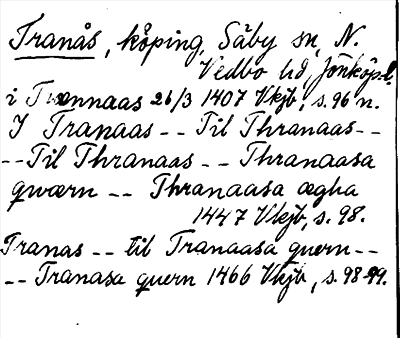 Tranås, köping, Säby sn, N.
Vedbo hd, Jönköp.l.
i Trænnaas 26/3 1407 Vkjb, s. 96 n.
I Tranaas -- Til Thranaas--
--Til Thranaas -- Thranaasa
qwærn -- Thranaasa ægha
1447 Vkjb, s. 98.
Tranas -- til Tranaasa quern--
-- Tranasa quern 1466 Vkjb, s. 98-99.